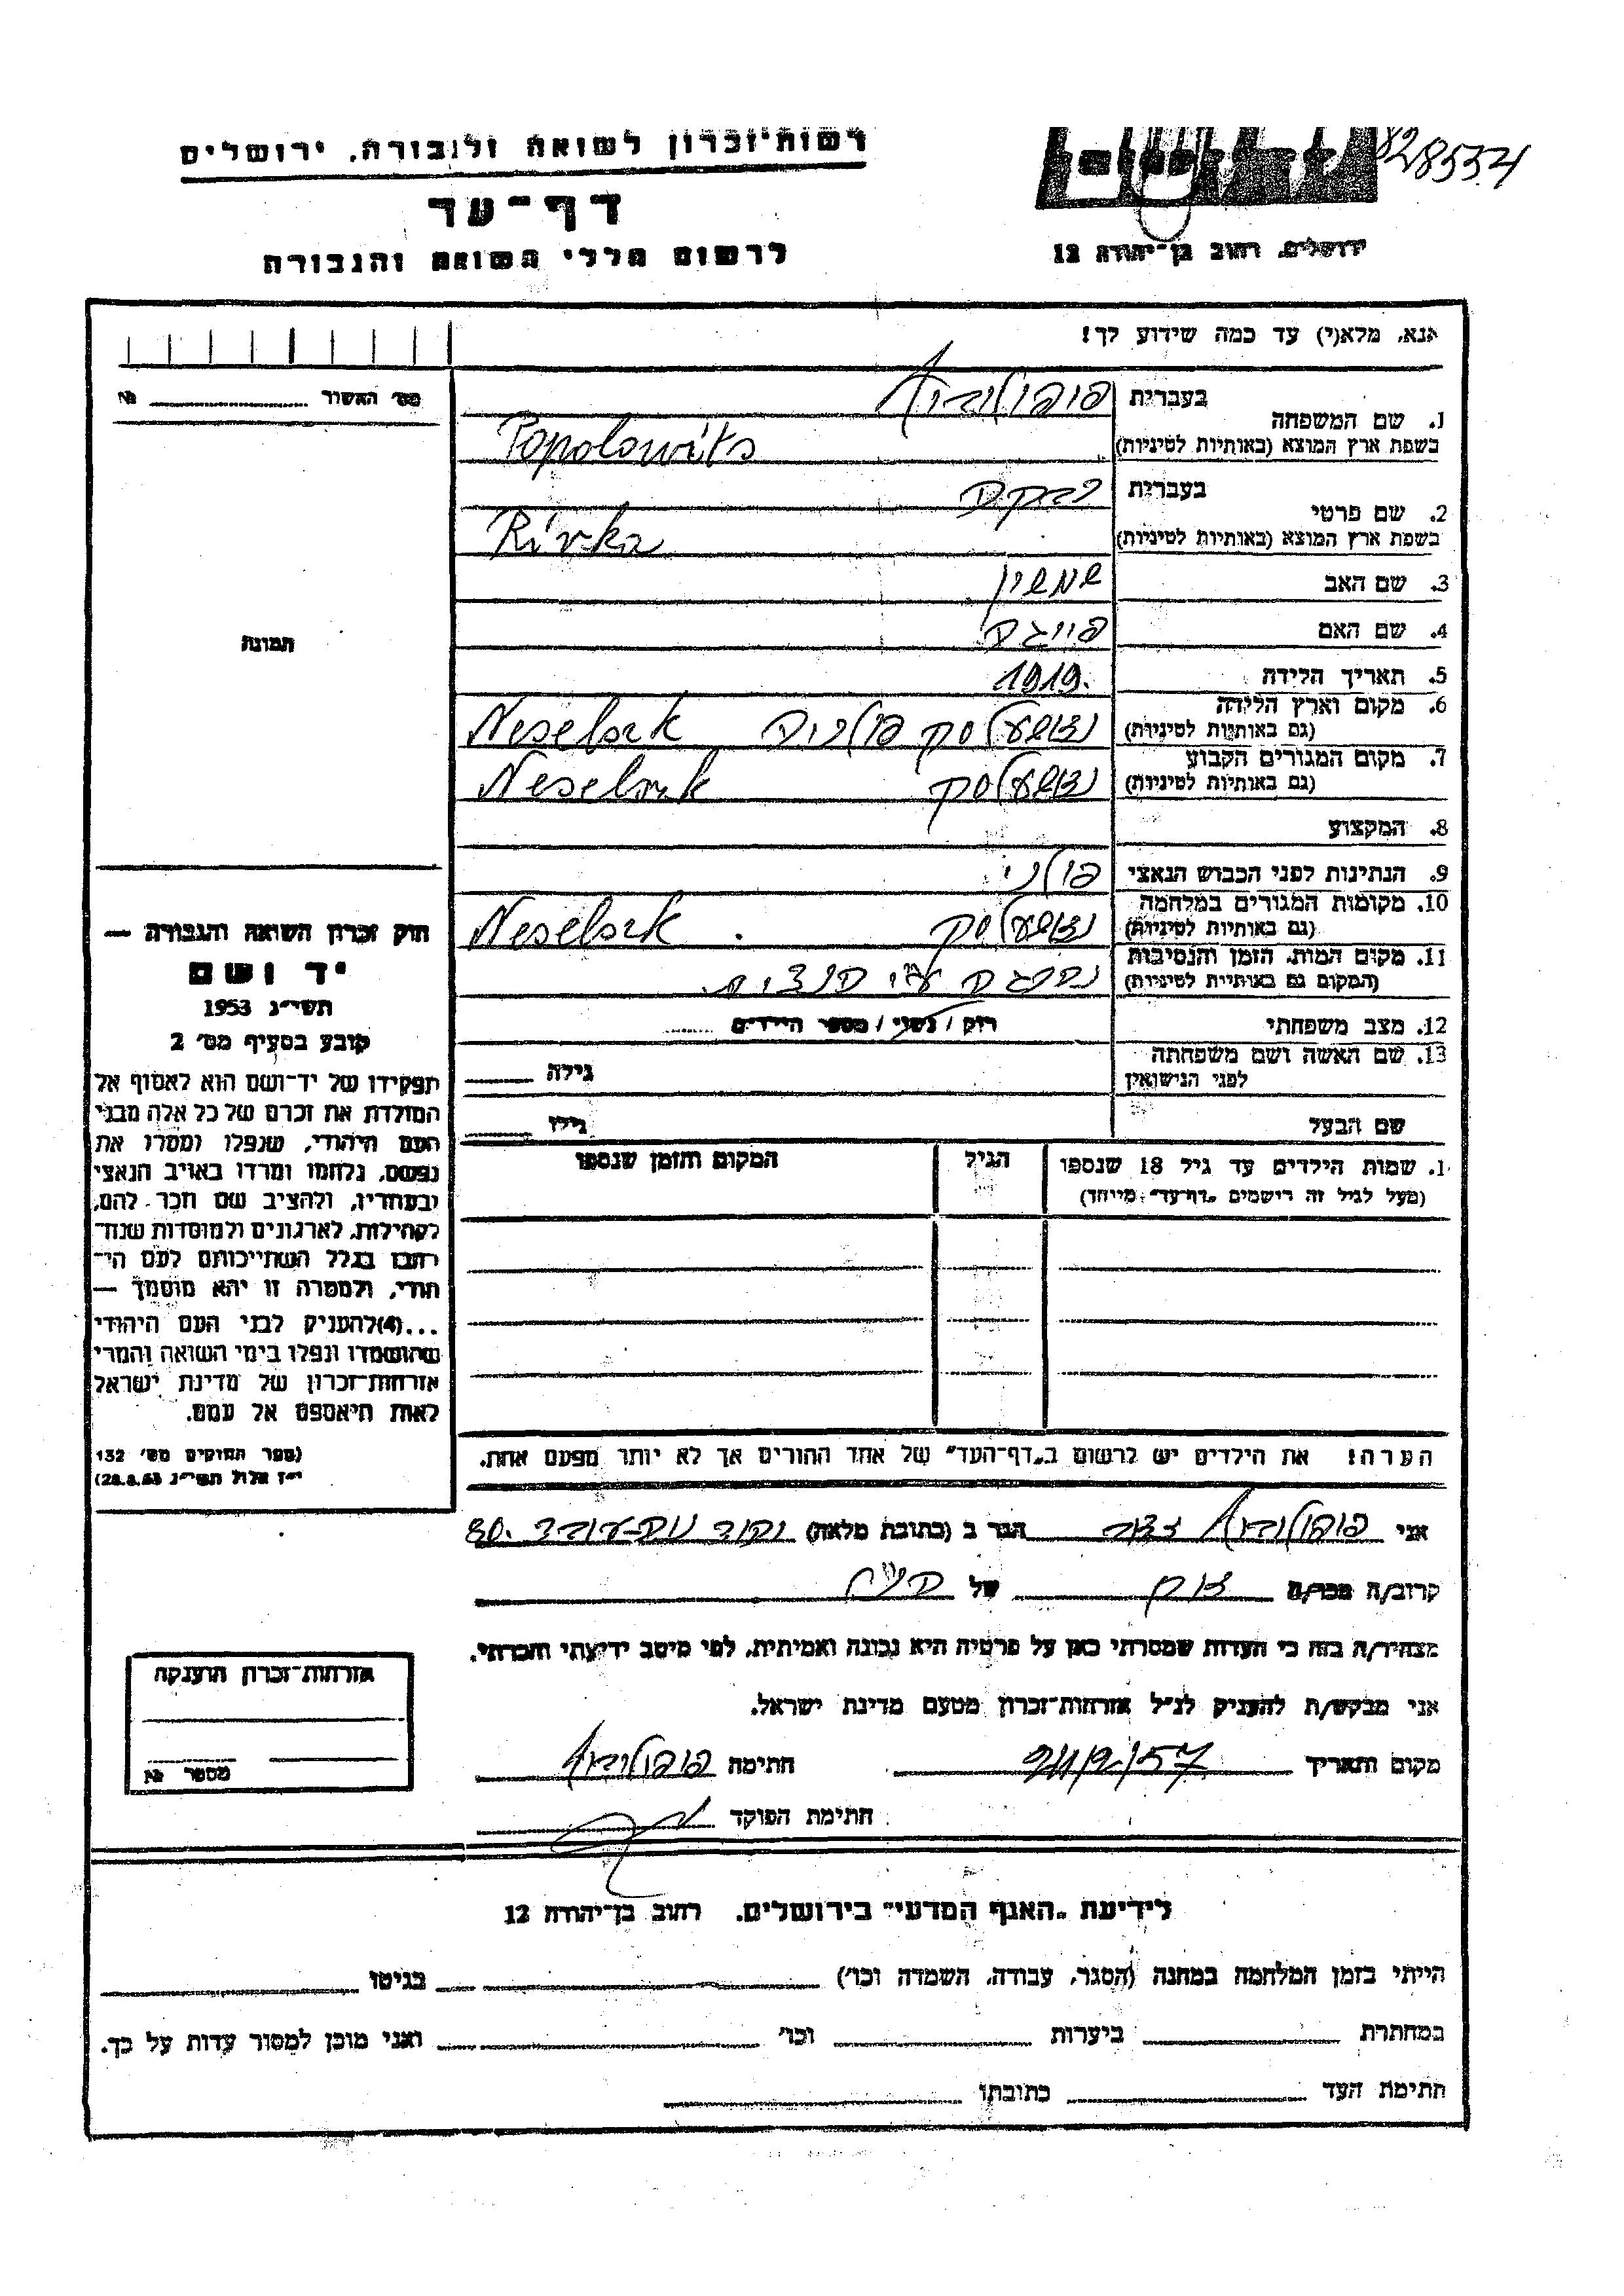 828534
רשות־זכרון לשואה ולגבורה, ירושלים
דף־עד
לרשום חללי השואה והגבורה
ירושלים, רחוב בן־יהודה 12
אנא, מלא(י) עד כמה שידוע לך!
מס׳ האשור № 
1. שם המשפחה
בעברית
בשפת ארץ המוצא (באותיות לטיניות) Popolowits
2. שם פרטי
בעברית רבקה
בשפת ארץ המוצא (באותיות לטיניות) Rivka
3. שם האב שמשון
4. שם האם פייגה
5. תאריך הלידה 1919.
6. מקום וארץ הלידה
(גם באותיות לטיניות) נאשעלסק פולניה Neselsk
7. מקום המגורים הקבוע
(גם באותיות לטיניות) נאשעלסק Neselsk
8. המקצוע
9. הנתינות לפני הכבוש הנאצי פולני
10. מקומות המגורים במלחמה
(גם באותיות לטיניות) נאשעלסק Neselsk
11. מקום המות, הזמן והנסיבות
(המקום גם באותיות לטיניות) נהרגה ע״י
12. מצב משפחתי רוק / נשוי / מספר הילדים
13. שם האשה ושם משפחתה
לפני הנישואין גילה
שם הבעל גילו
1. שמות הילדים עד גיל 18 שנספו
(מעל לגיל זה רישמים „דף־עד״ מיוחד)
הגיל
המקום והזמן שנספו
הערה! את הילדים יש לרשום ב„דף־העד״ של אחד ההורים אך לא יותר מפעם אחת.
תמונה
חוק זכרון השואה והגבורה —
יד ושם
תשי״ג 1953
קובע בסעיף מס׳ 2
תפקידו של יד־ושם הוא לאסוף אל
המולדת את זכרם של כל אלה מבני
העם היהודי, שנפלו ומסרו את
נפשם, נלחמו ומרדו באויב הנאצי
ובעוזריו, ולהציב שם וזכר להם,
לקהילות, לארגונים ולמוסדות שנח־
רבו בגלל השתייכותם לעם הי־
הודי, ולמטרה זו יהא מוסמך —
...(4)להעניק לבני העם היהודי
שהושמדו ונפלו בימי השואה והמרי
אזרחות־זכרון של מדינת ישראל
לאות היאספם אל עמם.
(ספר החוקים מס׳ 132
י״ז אלול תשי״ג 28.8.53)
אני הגר ב (כתובת מלאה) 80.
קרוב/ה מכר/ה של
מצהיר/ה בזה כי העדות שמסרתי כאן על פרטיה היא נכונה ואמיתית, לפי מיטב ידיעתי והכרתי.
אני מבקש/ת להעניק לנ״ל אזרחות־זכרון מטעם מדינת ישראל.
מקום ותאריך חתימה
חתימת הפוקד
אזרחות־זכרון הוענקה
מספר №
לידיעת „האגף המדעי״ בירושלים, רחוב בן־יהודה 12
הייתי בזמן המלחמה במחנה (הסגר, עבודה, השמדה וכו׳) בגיטו
במחתרת ביערות וכו׳ ואני מוכן למסור עדות על כך.
חתימת העד כתובתו